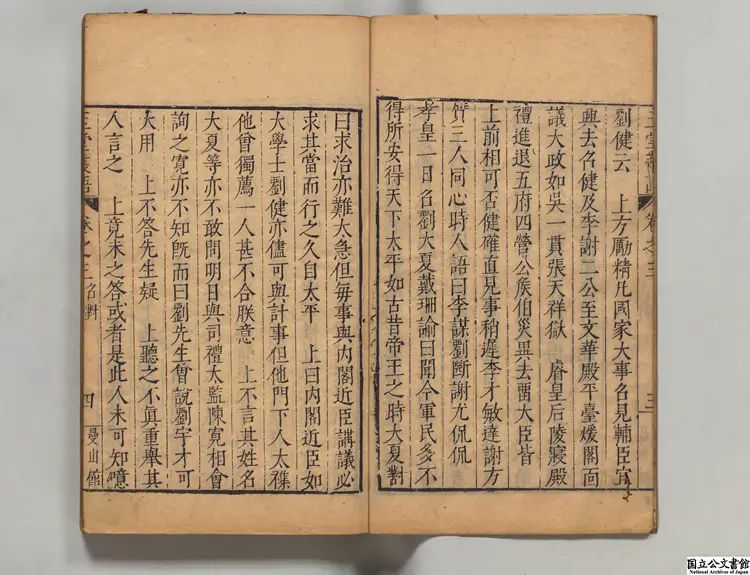 玉堂叢語 卷之三 三
劉健云　上方勵精凡國家大事召見輔臣宜
興去召健及李謝二公至文華殿平臺煖閣面
議大政如吳一貫張天祥獄　睿皇后陵寢殿
禮進退五府四營公侯伯災異去畱大臣皆
上前相可否健確直見事稍遲李才敏達謝方
質三人同心時人語曰李謀劉斷謝尤侃侃
孝皇一日召劉大夏戴珊諭曰聞今軍民多不
得所安得天下太平如古昔帝王之時大夏對
曰求治亦難太急但每事與內閣近臣講議必
求其當而行之久自太平　上曰內閣近臣如
大學士劉健亦儘可與計事但他門下人太襍
他曾獨薦一人甚不合朕意　上不言其姓名
大夏等亦不敢問明日與司禮太監陳寬相會
詢之寬亦不知旣而曰劉先生曾説劉宇才可
大用　上不答先生疑　上聽之不眞重舉其
人言之　上竟未之答或者是此人未可知噫
玉堂叢語 卷之三 召對 四 曼山館
国立公文書館
National Archives of Japan